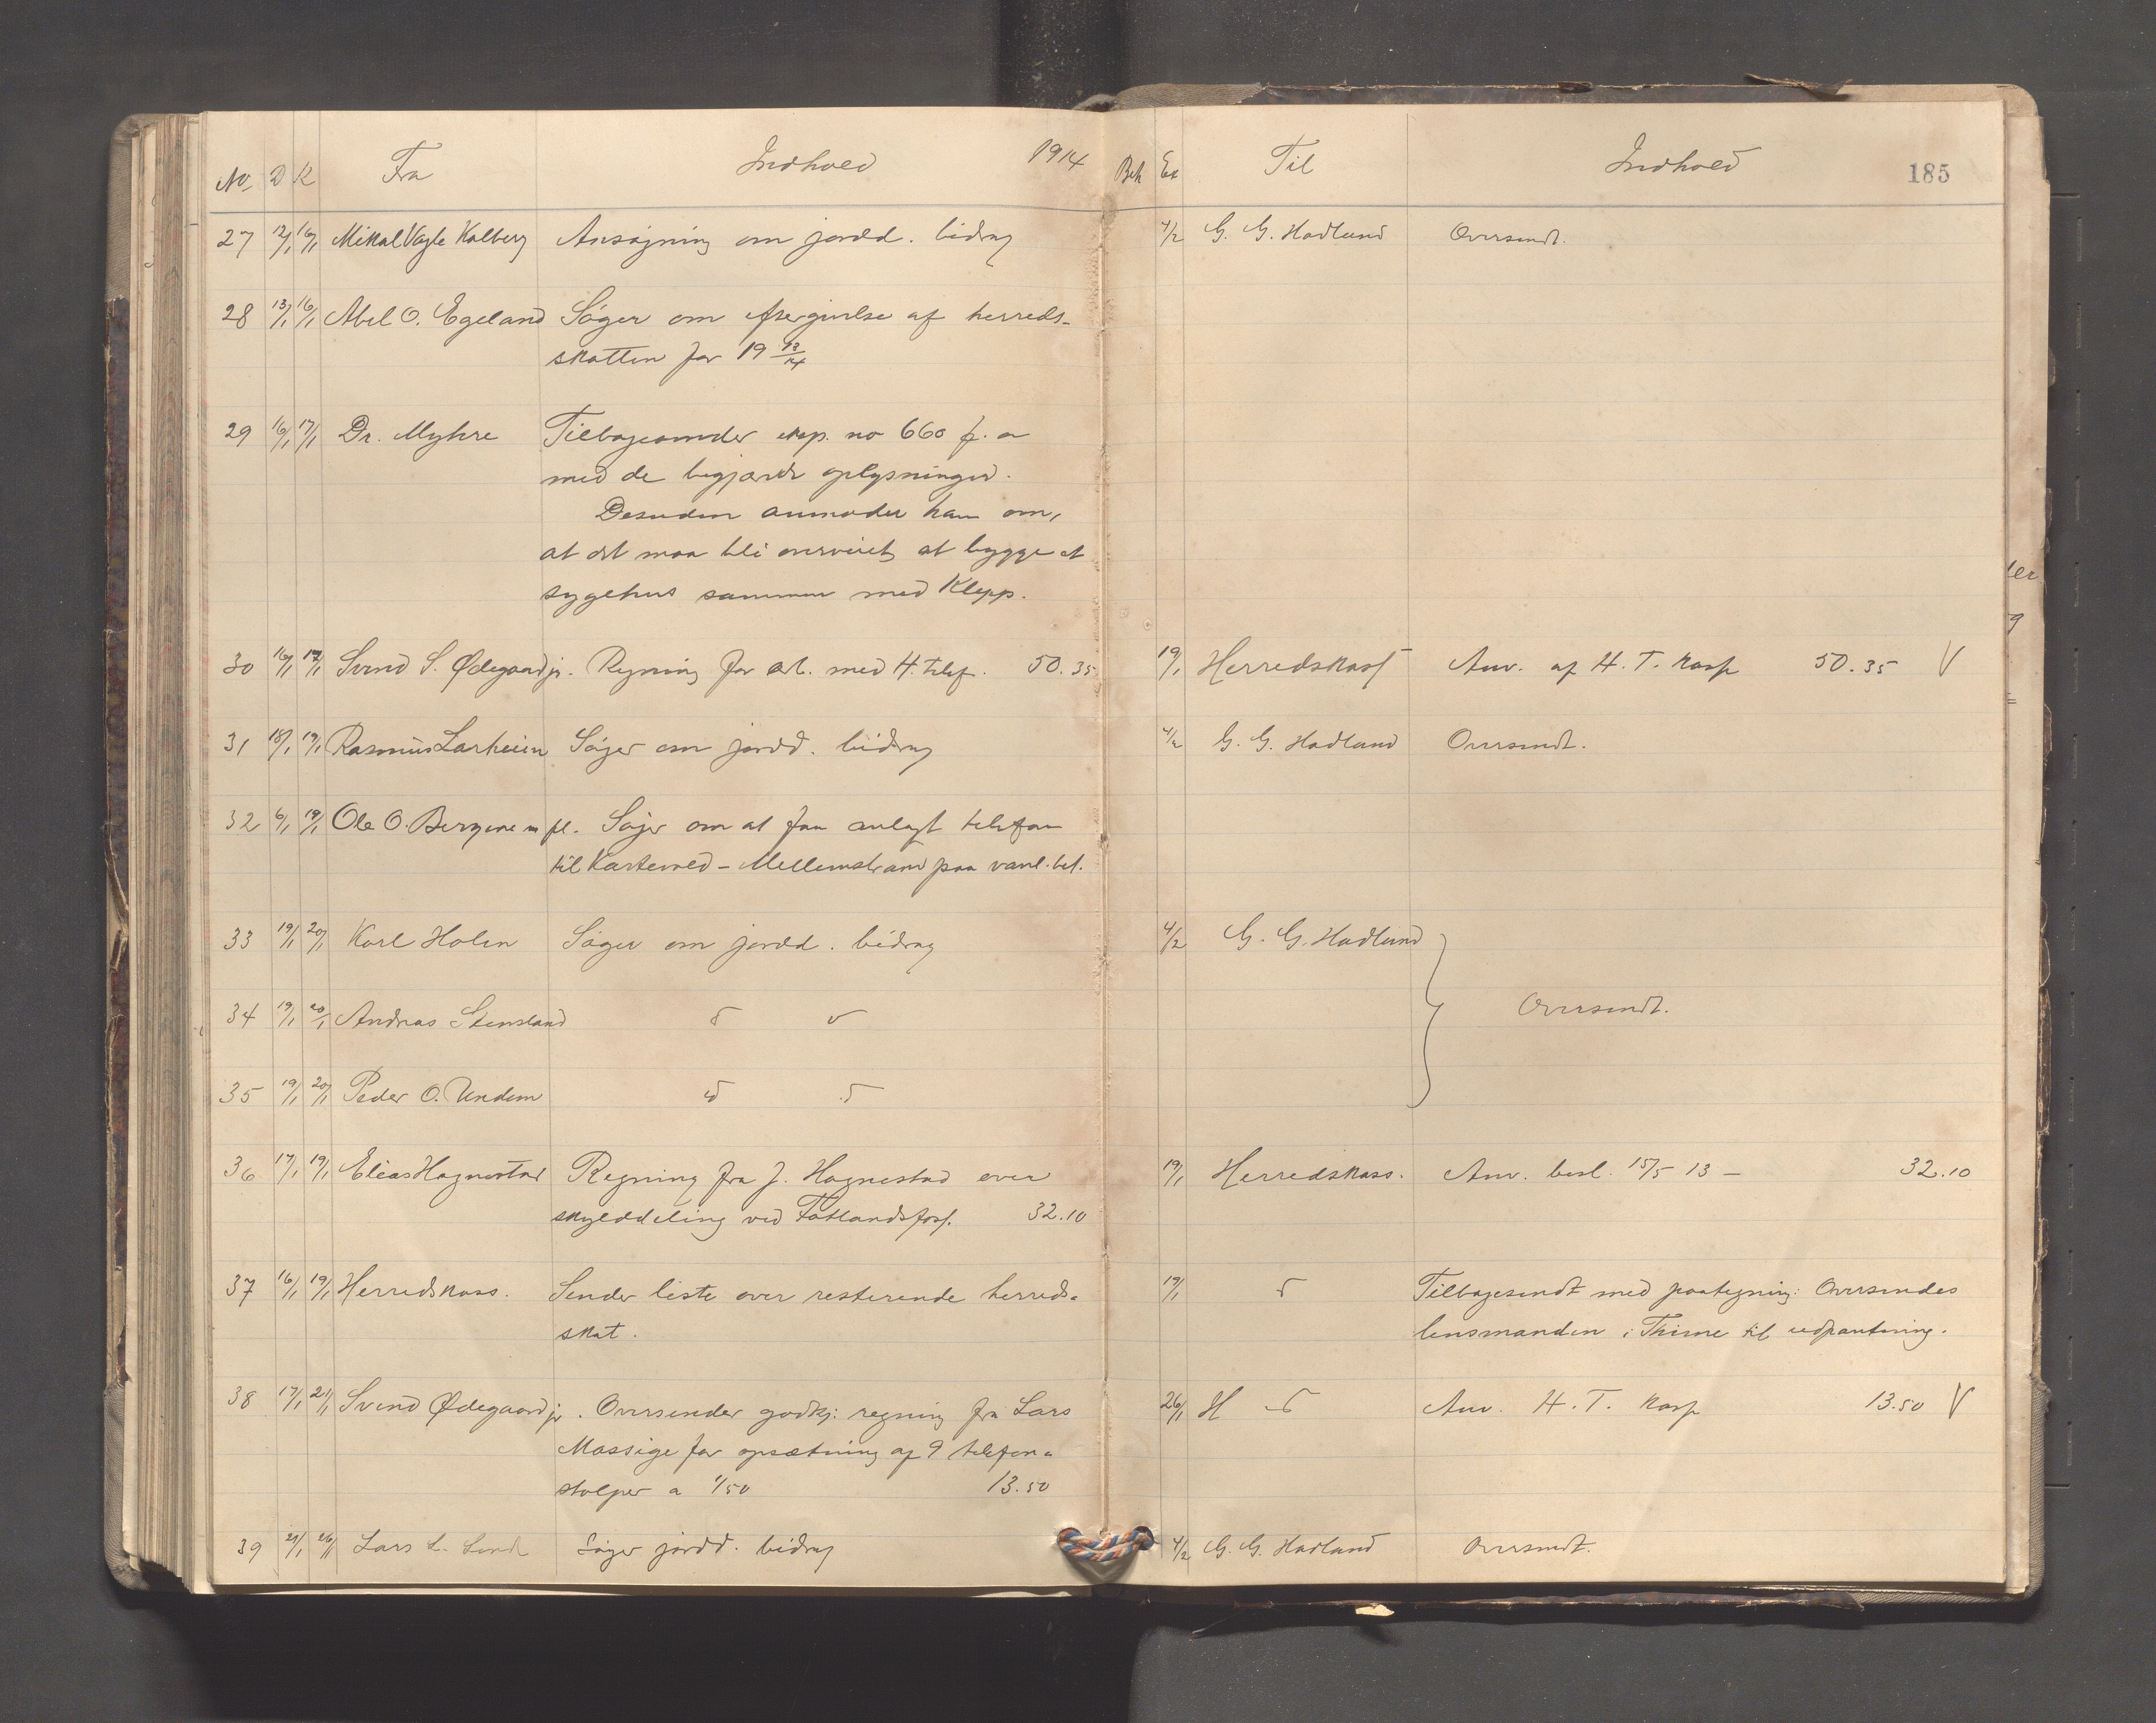 No D K Fra Indhold 1914 Beh Ex Til Indhold 185
27 12/1 16/1 Mikal Vagle Kalberg Ansøgning om jordd. bidrag 4/2 G. G. Hadland Oversendt.
28 13/1 16/1 Abel O. Egeland Søger om eftergivelse af herreds-
skatten for 19 13/14
29 16/1 17/1 Dr. Myhre Tilbagesender eksp. no 660 f. a
med de begjærte oplysninger.
Desuden anmoder han om,
at det maa bli overveiet at bygge et
sygehus sammen med Klepp.
30 16/1 17/1 Svend S. Ødegaard jr. Regning for arb. med H. telef. 50.35 19/1 Herredskass Anv. af H. T. kass 50.35 V
31 18/1 19/1 Rasmus Larheim Søger om jordd. bidrag 4/2 G. G. Hadland Oversendt.
32 6/1 19/1 Ole O. Bergene m fl. Søger om at faa anlagt telefon
til Kartevold - Mellemstrand paa vanl. bet.
33 19/1 20/1 Karl Holen Søger om jordd. bidrag 4/2 G. G. Hadland
34 19/1 20/1 Andreas Stensland Oversendt.
35 19/1 20/1 Peder O. Undem
36 17/1 19/1 Elias Hognestad Regning fra J. Hognestad over 19/1 Herredskass. Anv. besl. 15/5 13 - 32.10
skylddeling ved Fotlandsfoss. 32.10
37 16/1 19/1 Herredskass. Sender liste over resterende herreds- 19/1 Tilbagesendt med paategning: Oversendes
skat. lensmanden i Thime til udpantning.
38 17/1 21/1 Svend Ødegaard jr. Oversender godkj: regning fra Lars 26/1 H Anv. H. T. kass 13.50 V
Mossige for opsætning af 9 telefon-
stolper a 1/50 13.50
39 21/1 26/1 Lars L. Søger jordd. bidrag 4/2 G. G. Hadland Oversendt.